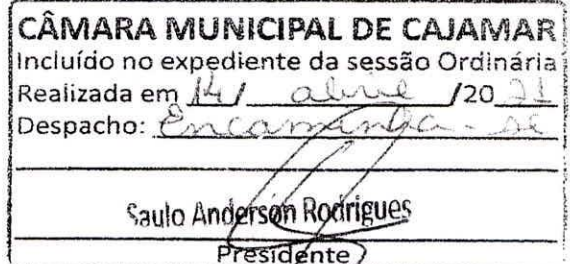 CÂMARA MUNICIPAL DE CAJAMAR
Incluído no expediente da sessão Ordinária
Realizada em 14 / abril /20 21
Despacho: Encaminha-se
Saulo Anderson Rodrigues
Presidente